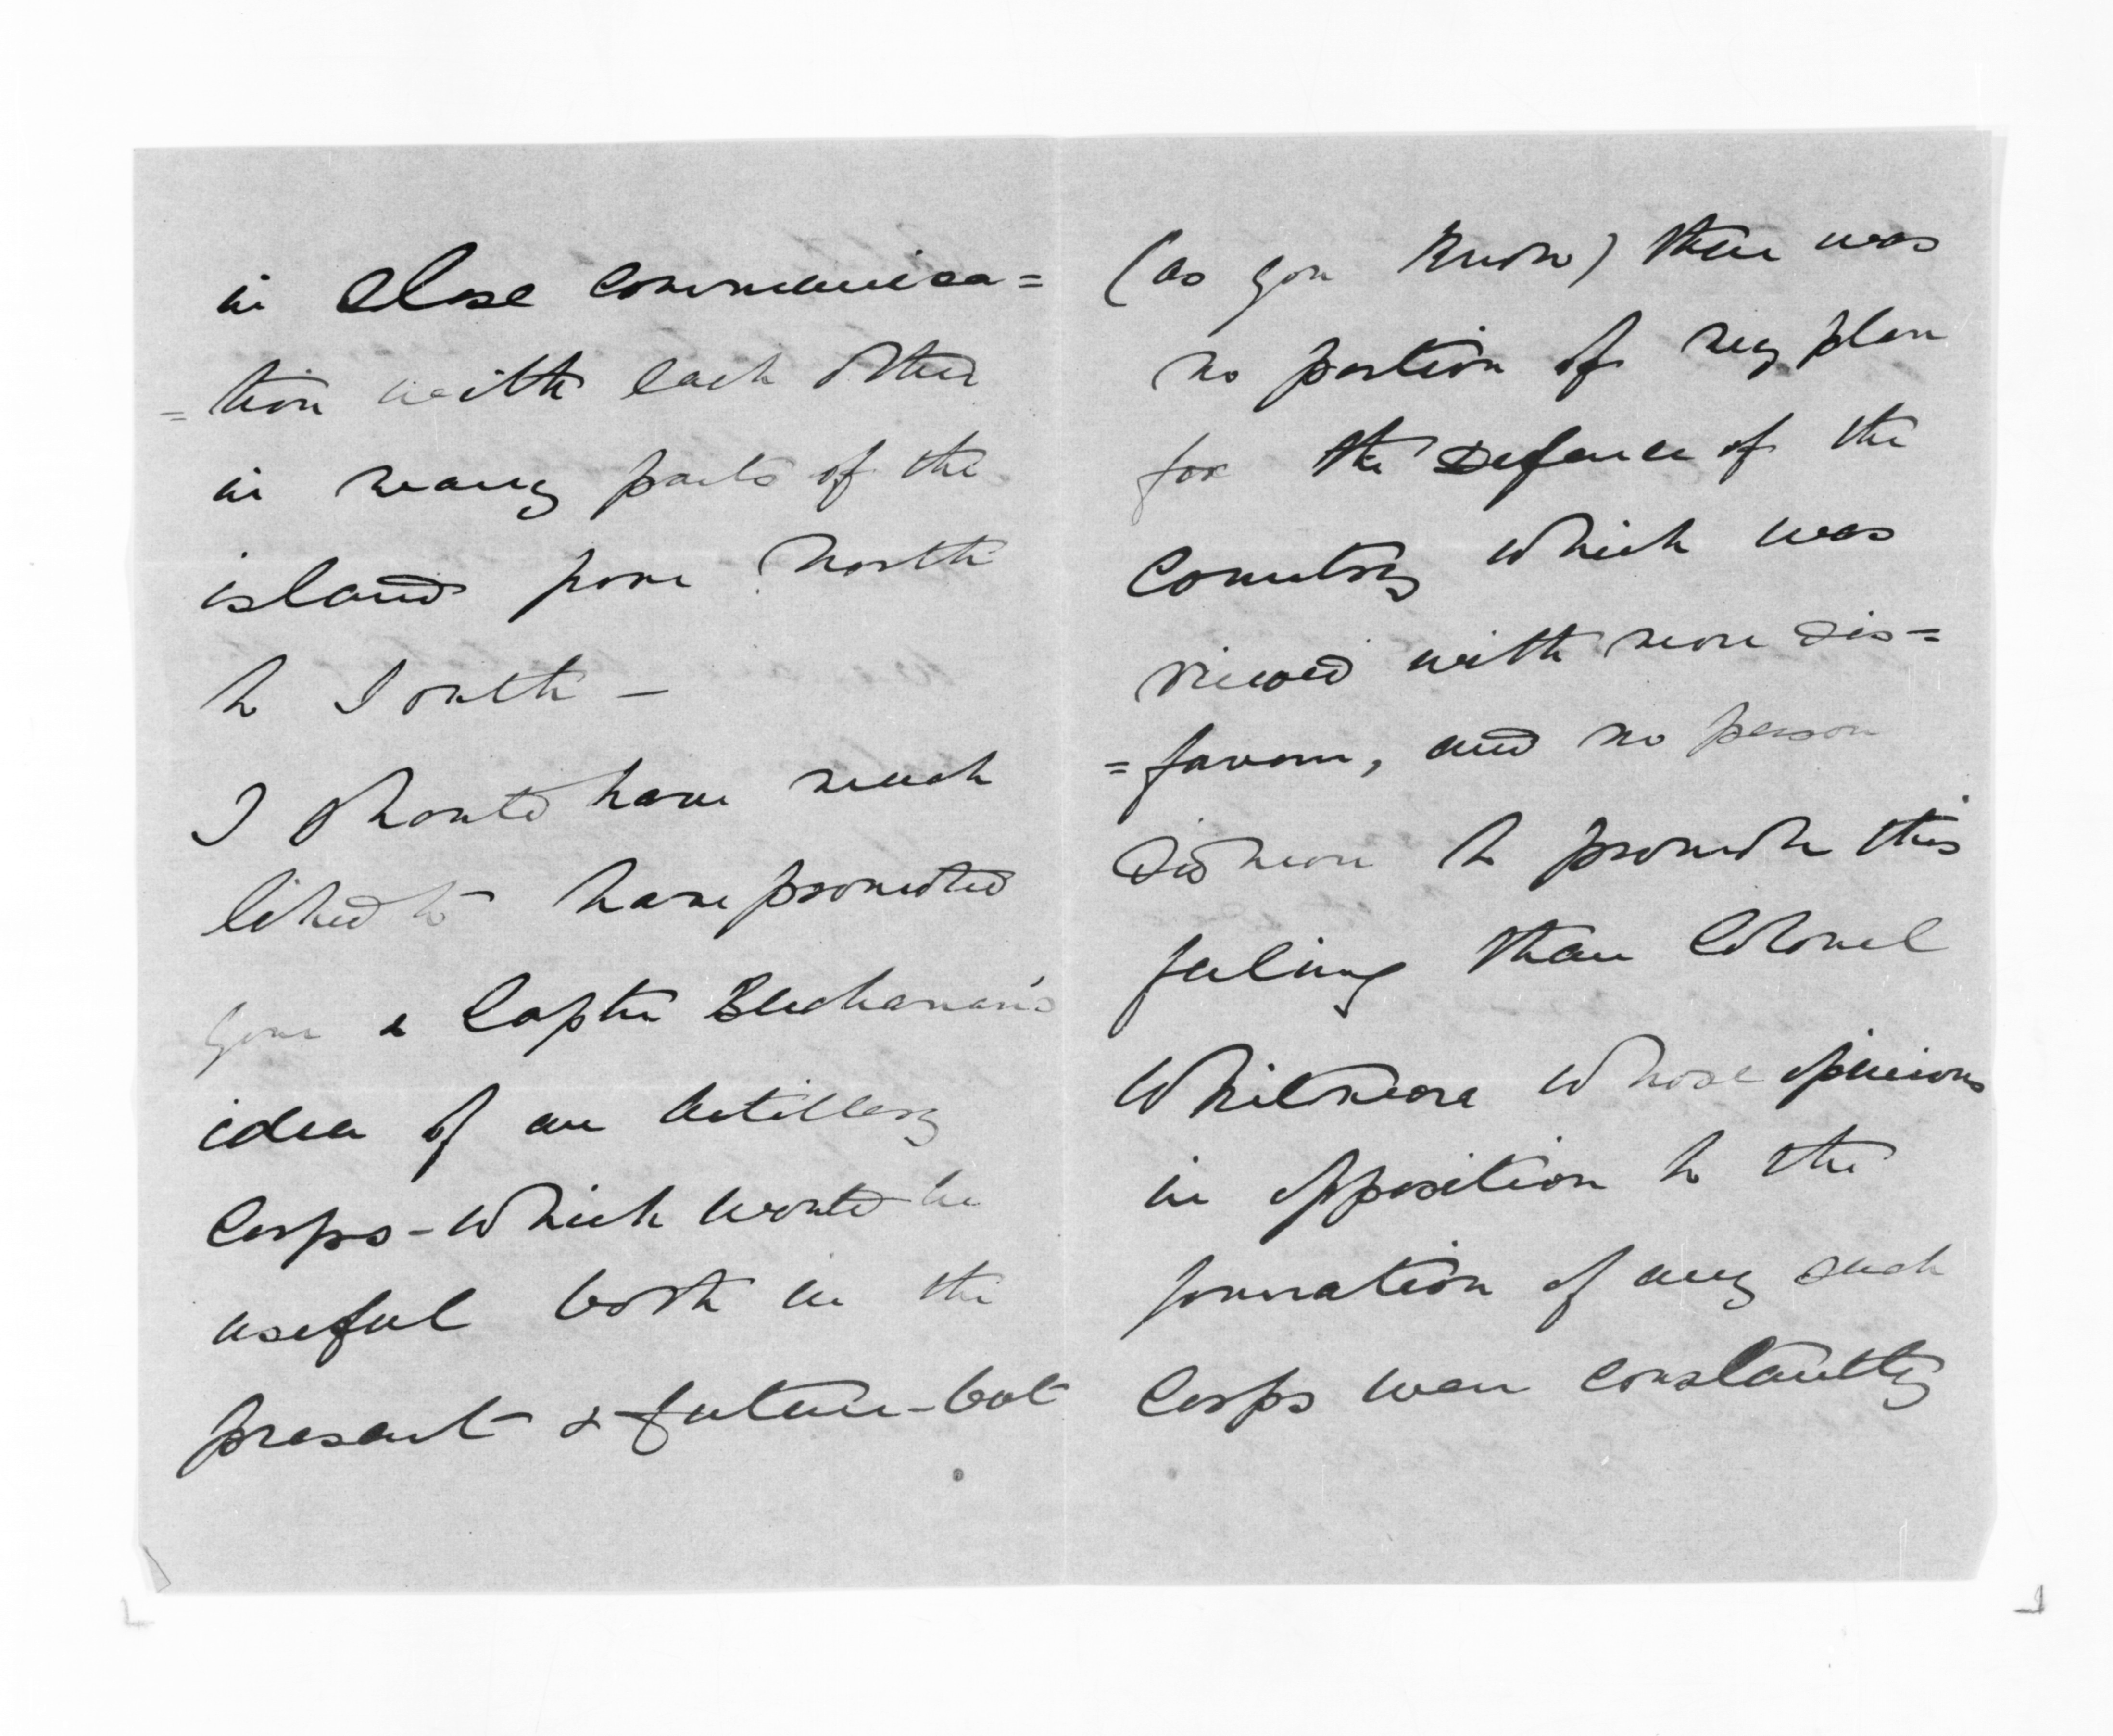 in close communica=
=tion with each other
in many parts of the
island from North
to South –
I should have much
liked to have promoted
your & Captn Buchanan's
idea of an Artillery
Corps – which would be
useful both in the
present & future – but
(as you know) there was
no portion of my plan
for the Defence of the
Country which was
viewed with more dis=
=favour, and no person
did more to promote this
feeling than Colonel
Whitmore whose opinions
in opposition to the
formation of any such
Corps were constantly